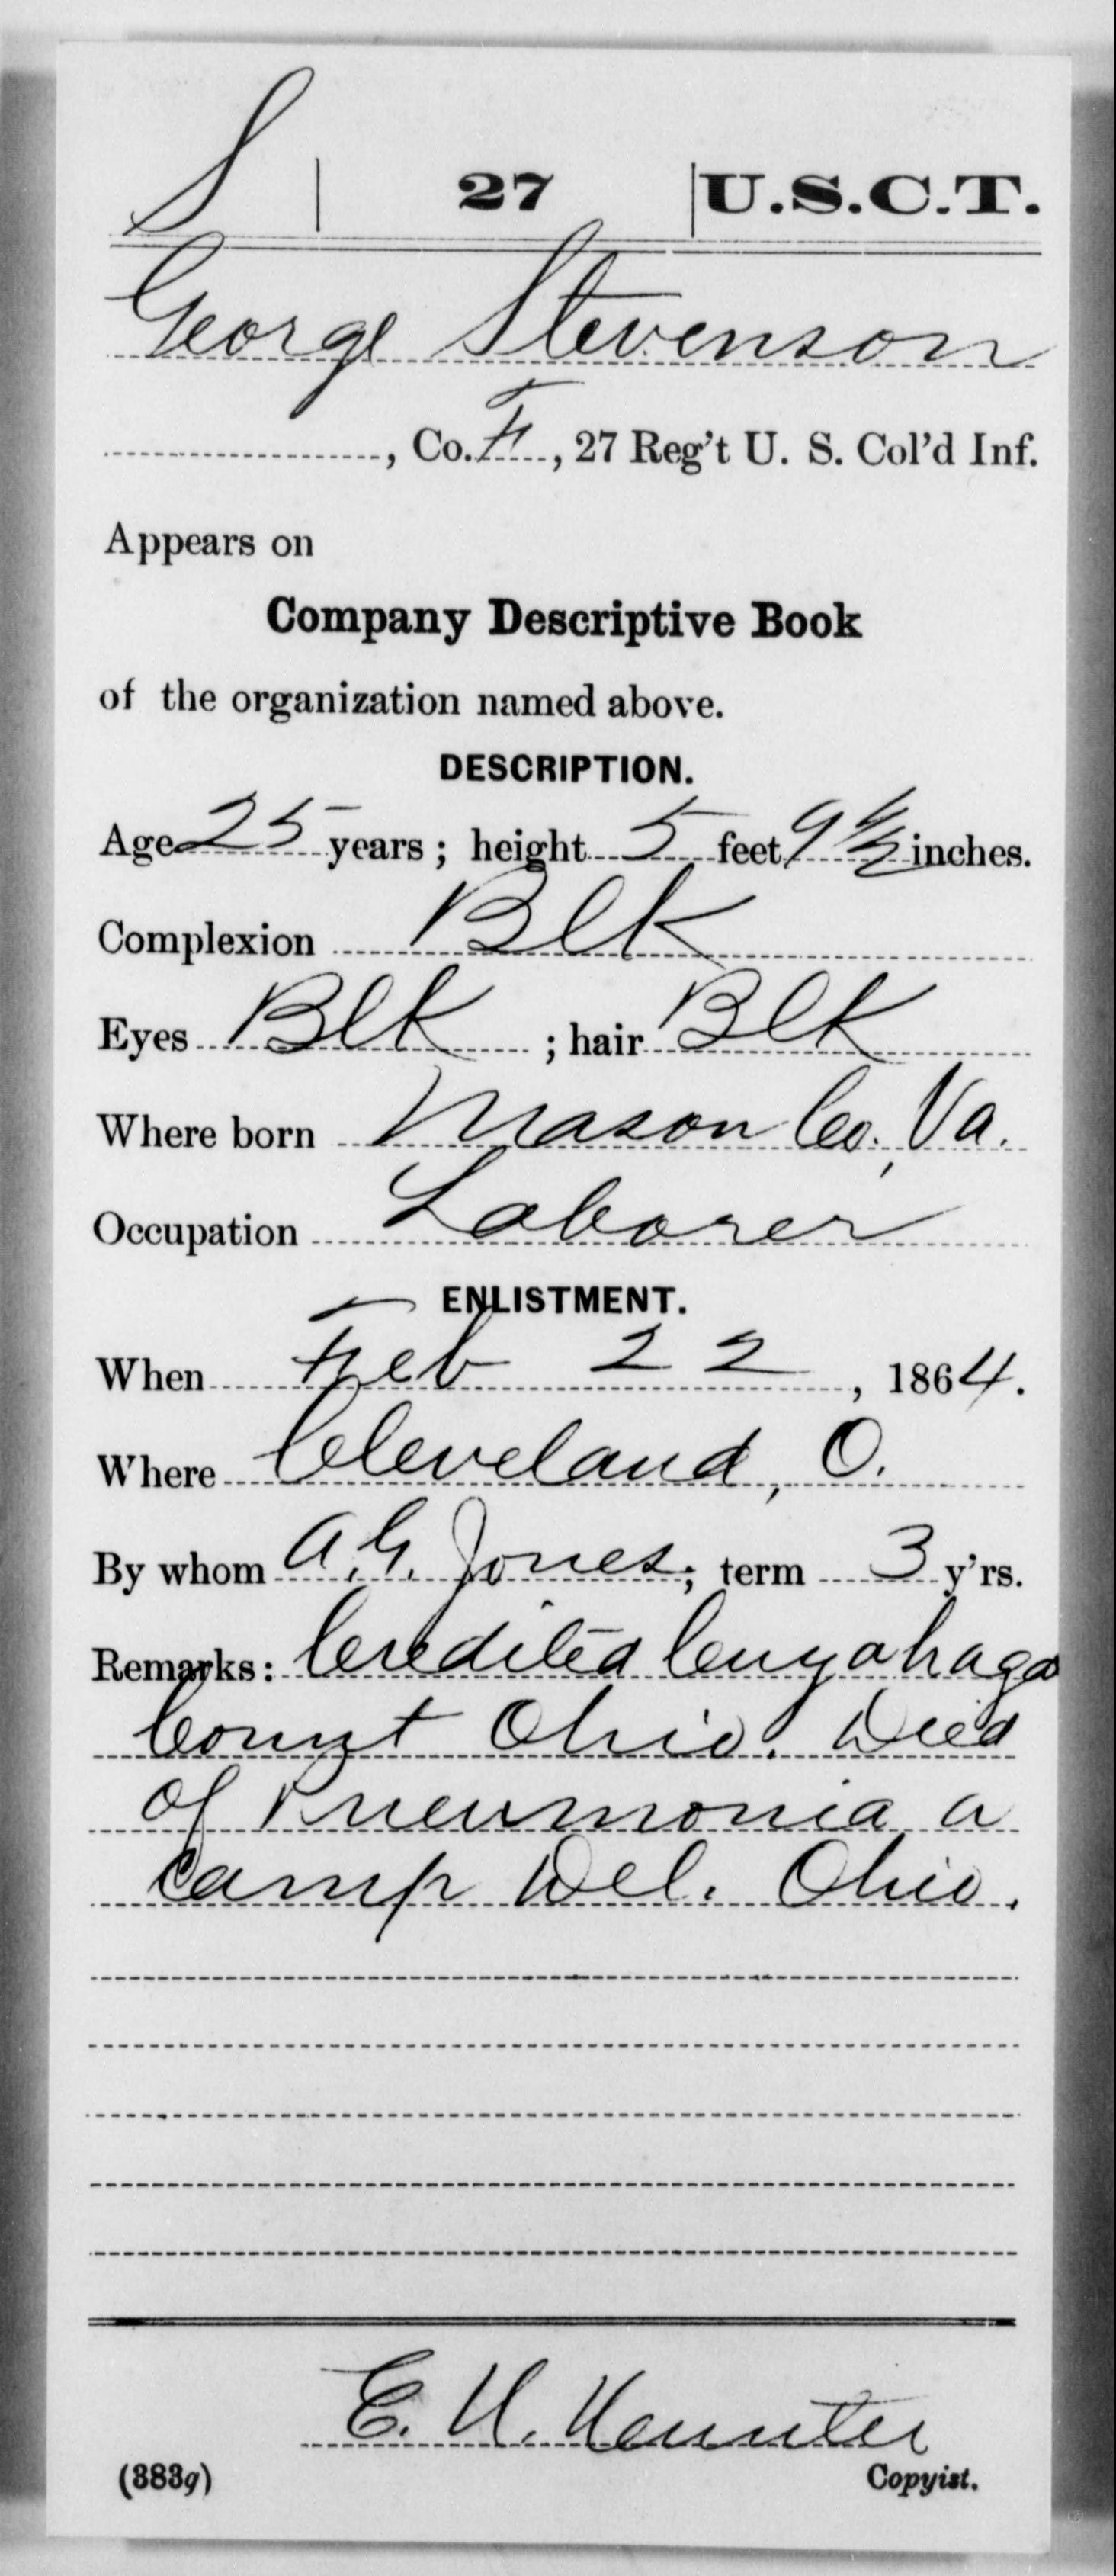 S | 27 | U.S.C.T.
George Stevenson
, Co. F, 27 Reg't U. S. Col'd Inf.
Appears on
Company Descriptive Book
of the organization named above.
DESCRIPTION.
Age 25 years; height 5 feet 9 1/2 inches.
Complexion Blk
Eyes Blk; hair Blk
Where born Mason Co., Va.
Occupation Laborer
ENLISTMENT.
When Feb 22, 1864.
Where Cleveland, O.
By whom A.G. Jones; term 3 y'rs.
Remarks: Credited Cuyahaga
Count Ohio. Died
of Pneumonia a
Camp Del. Ohio.
E. H.
(383g) Copyist.